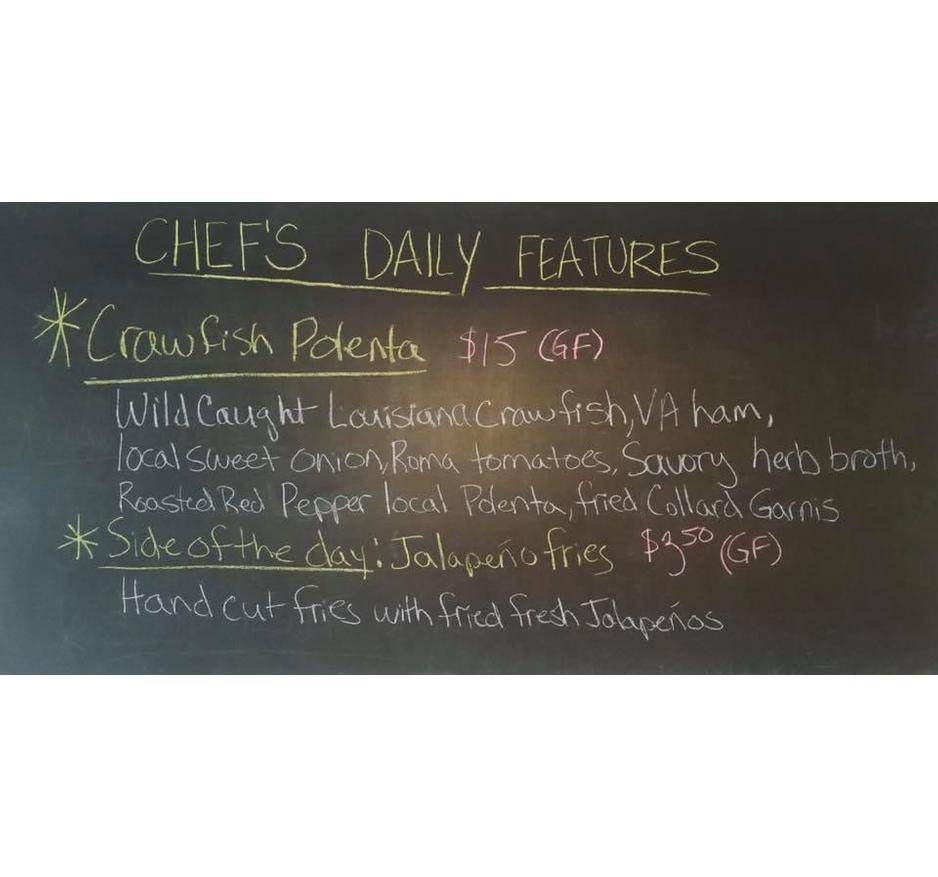 CHEF'S DAILY FEATURES
* Crawfish Polenta $15 (GF)
Wild Caught Louisiana Crawfish, VA ham,
local sweet onion, Roma tomatoes, Savory herb broth,
Roasted Red Pepper local Polenta, fried Collard Garnis
* Side of the day: Jalapeño fries $3.50 (GF)
Hand cut fries with fried fresh Jalapeños